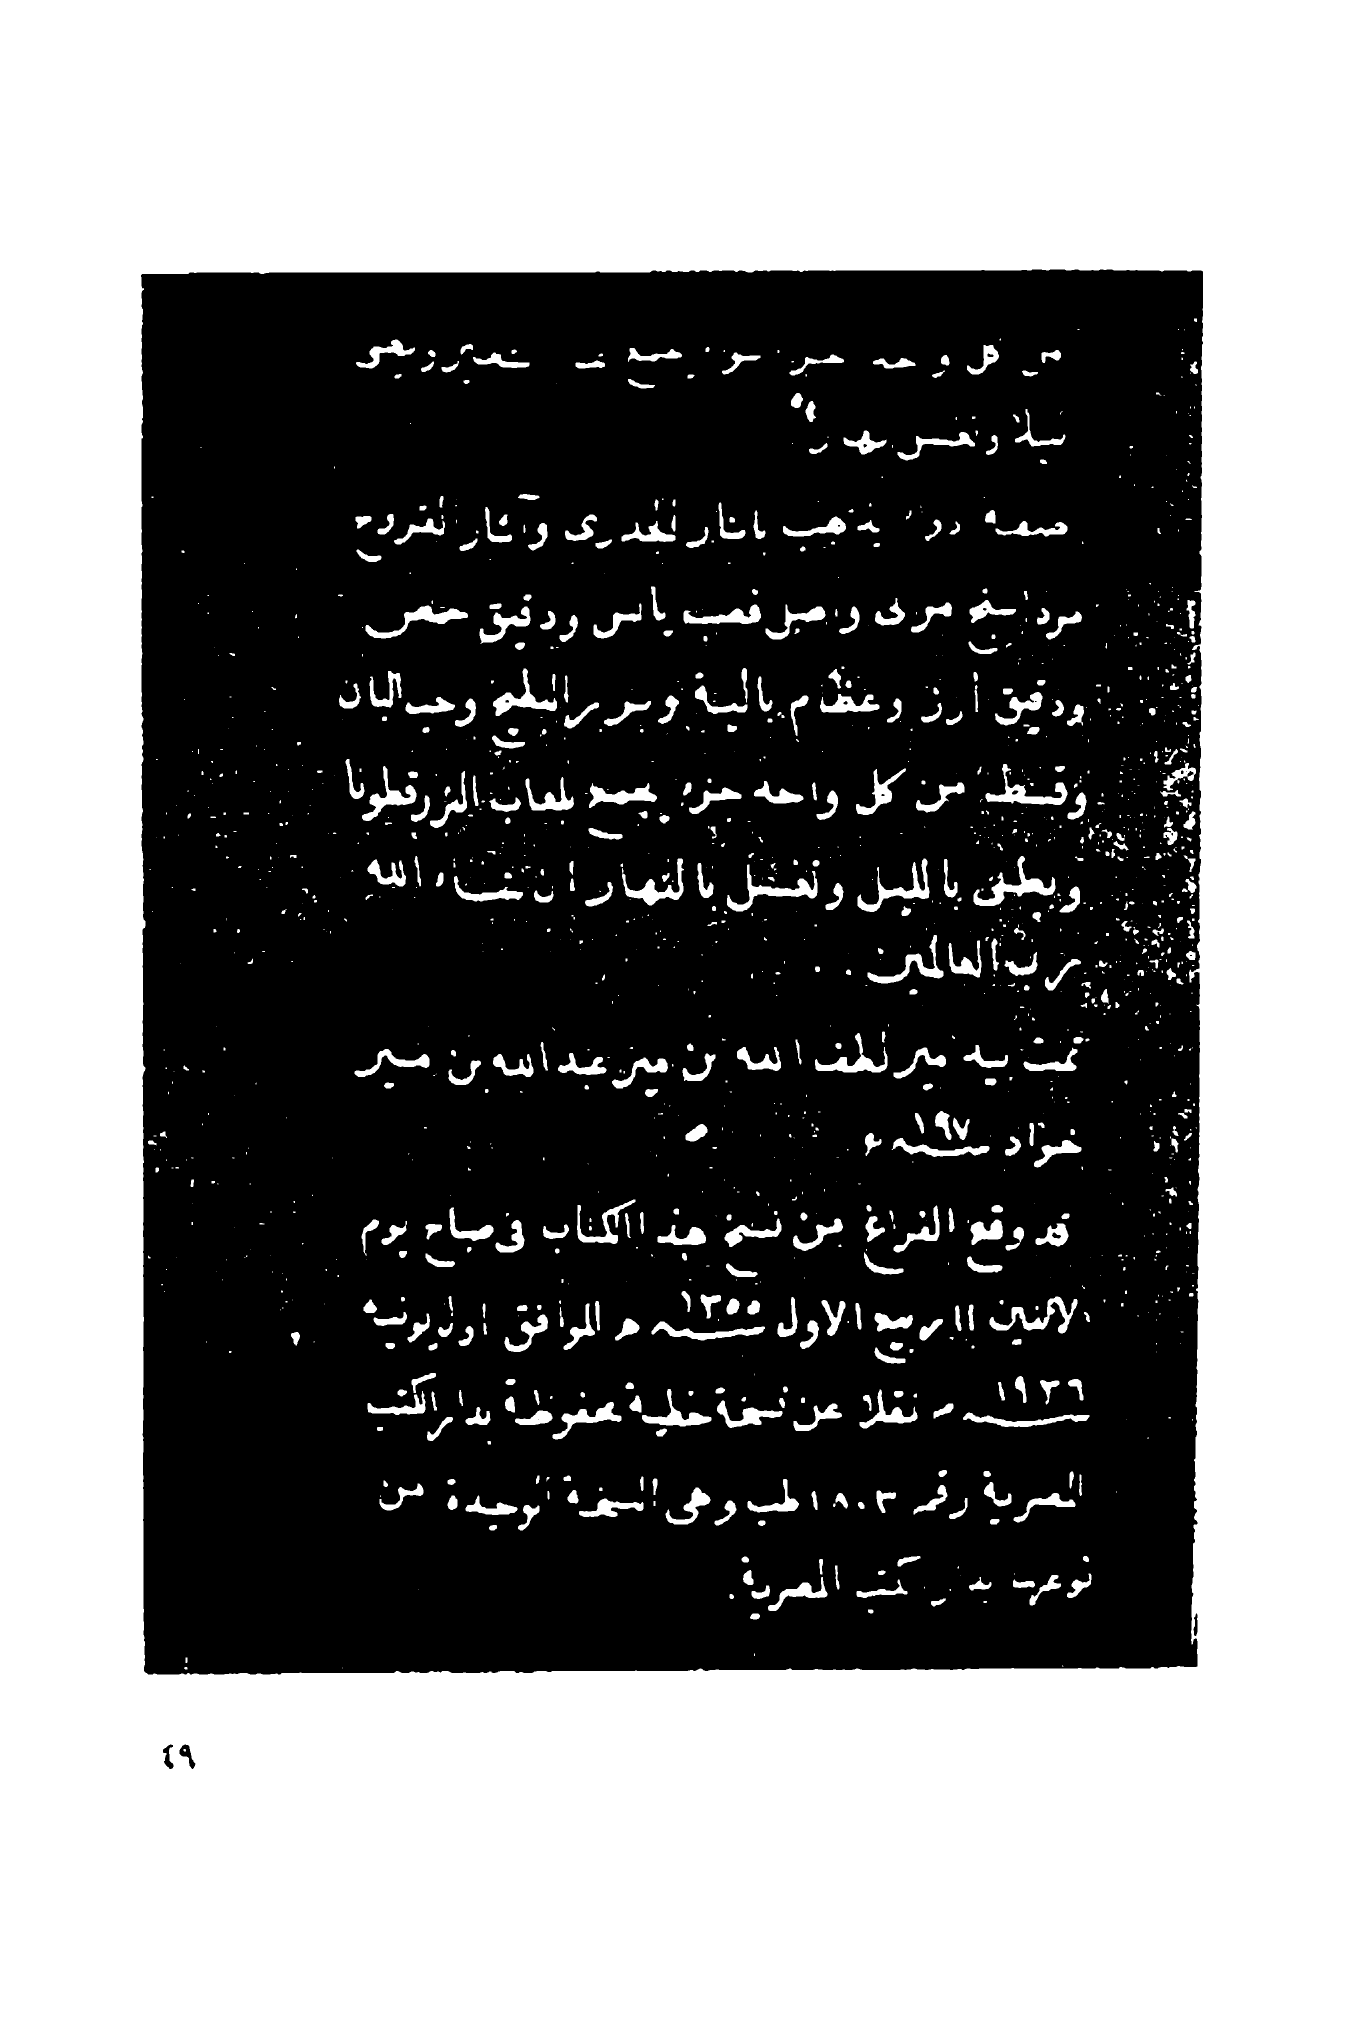 من كل واحد جزء يجمع
ليلا وتغسل نهارا
صفة دواء يذهب باثار الجدرى وآثار القروح
مرداسنج مربى واصل قصب يابس ودقيق حمص
ودقيق أرز وعظام بالية وبزر البطيخ وحب البان
وقسط من كل واحد جزء يجمع بلعاب البزرقطونا
ويطلى بالليل وتغسل بالنهار ان شاء الله
رب العالمين ..
تمت بيد مير لطف الله بن مير عبد الله بن مير
سنة ١٩٧
قد وقع الفراغ من نسخ هذا الكتاب فى صباح يوم
الاثنين ١١ ربيع الاول سنة ١٣٥٥ ه الموافق اول يونيه
سنة ١٩٣٦ م نقلا عن نسخة خطية محفوظة بدار الكتب
المصرية رقم ١٨٠٣ طب وهى النسخة الوحيدة من
نوعها بدار الكتب المصرية.
٤٩